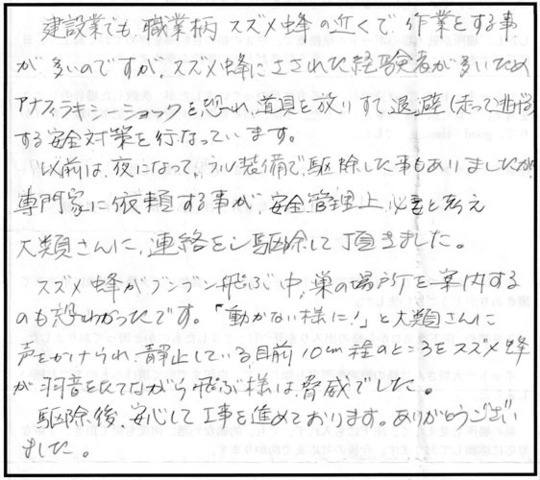 建設業でも、職業柄 スズメ蜂の近くで作業をする事
が多いのですが、スズメ蜂にさされた経験者が多いため
アナフィラキシーショックを恐れ、道具を放りすて、退避(走って逃げる)
する安全対策を行なっています。
以前は、夜になって、フル装備で、駆除した事もありましたが、
専門家に依頼する事が、安全管理上、必要と考え
大類さんに、連絡をし駆除して頂きました。
スズメ蜂がブンブン飛ぶ中、巣の場所を案内する
のも恐わかったです。「動かない様に!」と大類さんに
声をかけられ、静止している目前10cm程のところをスズメ蜂
が羽音をたてながら飛ぶ様は、脅威でした。
駆除後、安心して工事を進めております。ありがとうござい
ました。